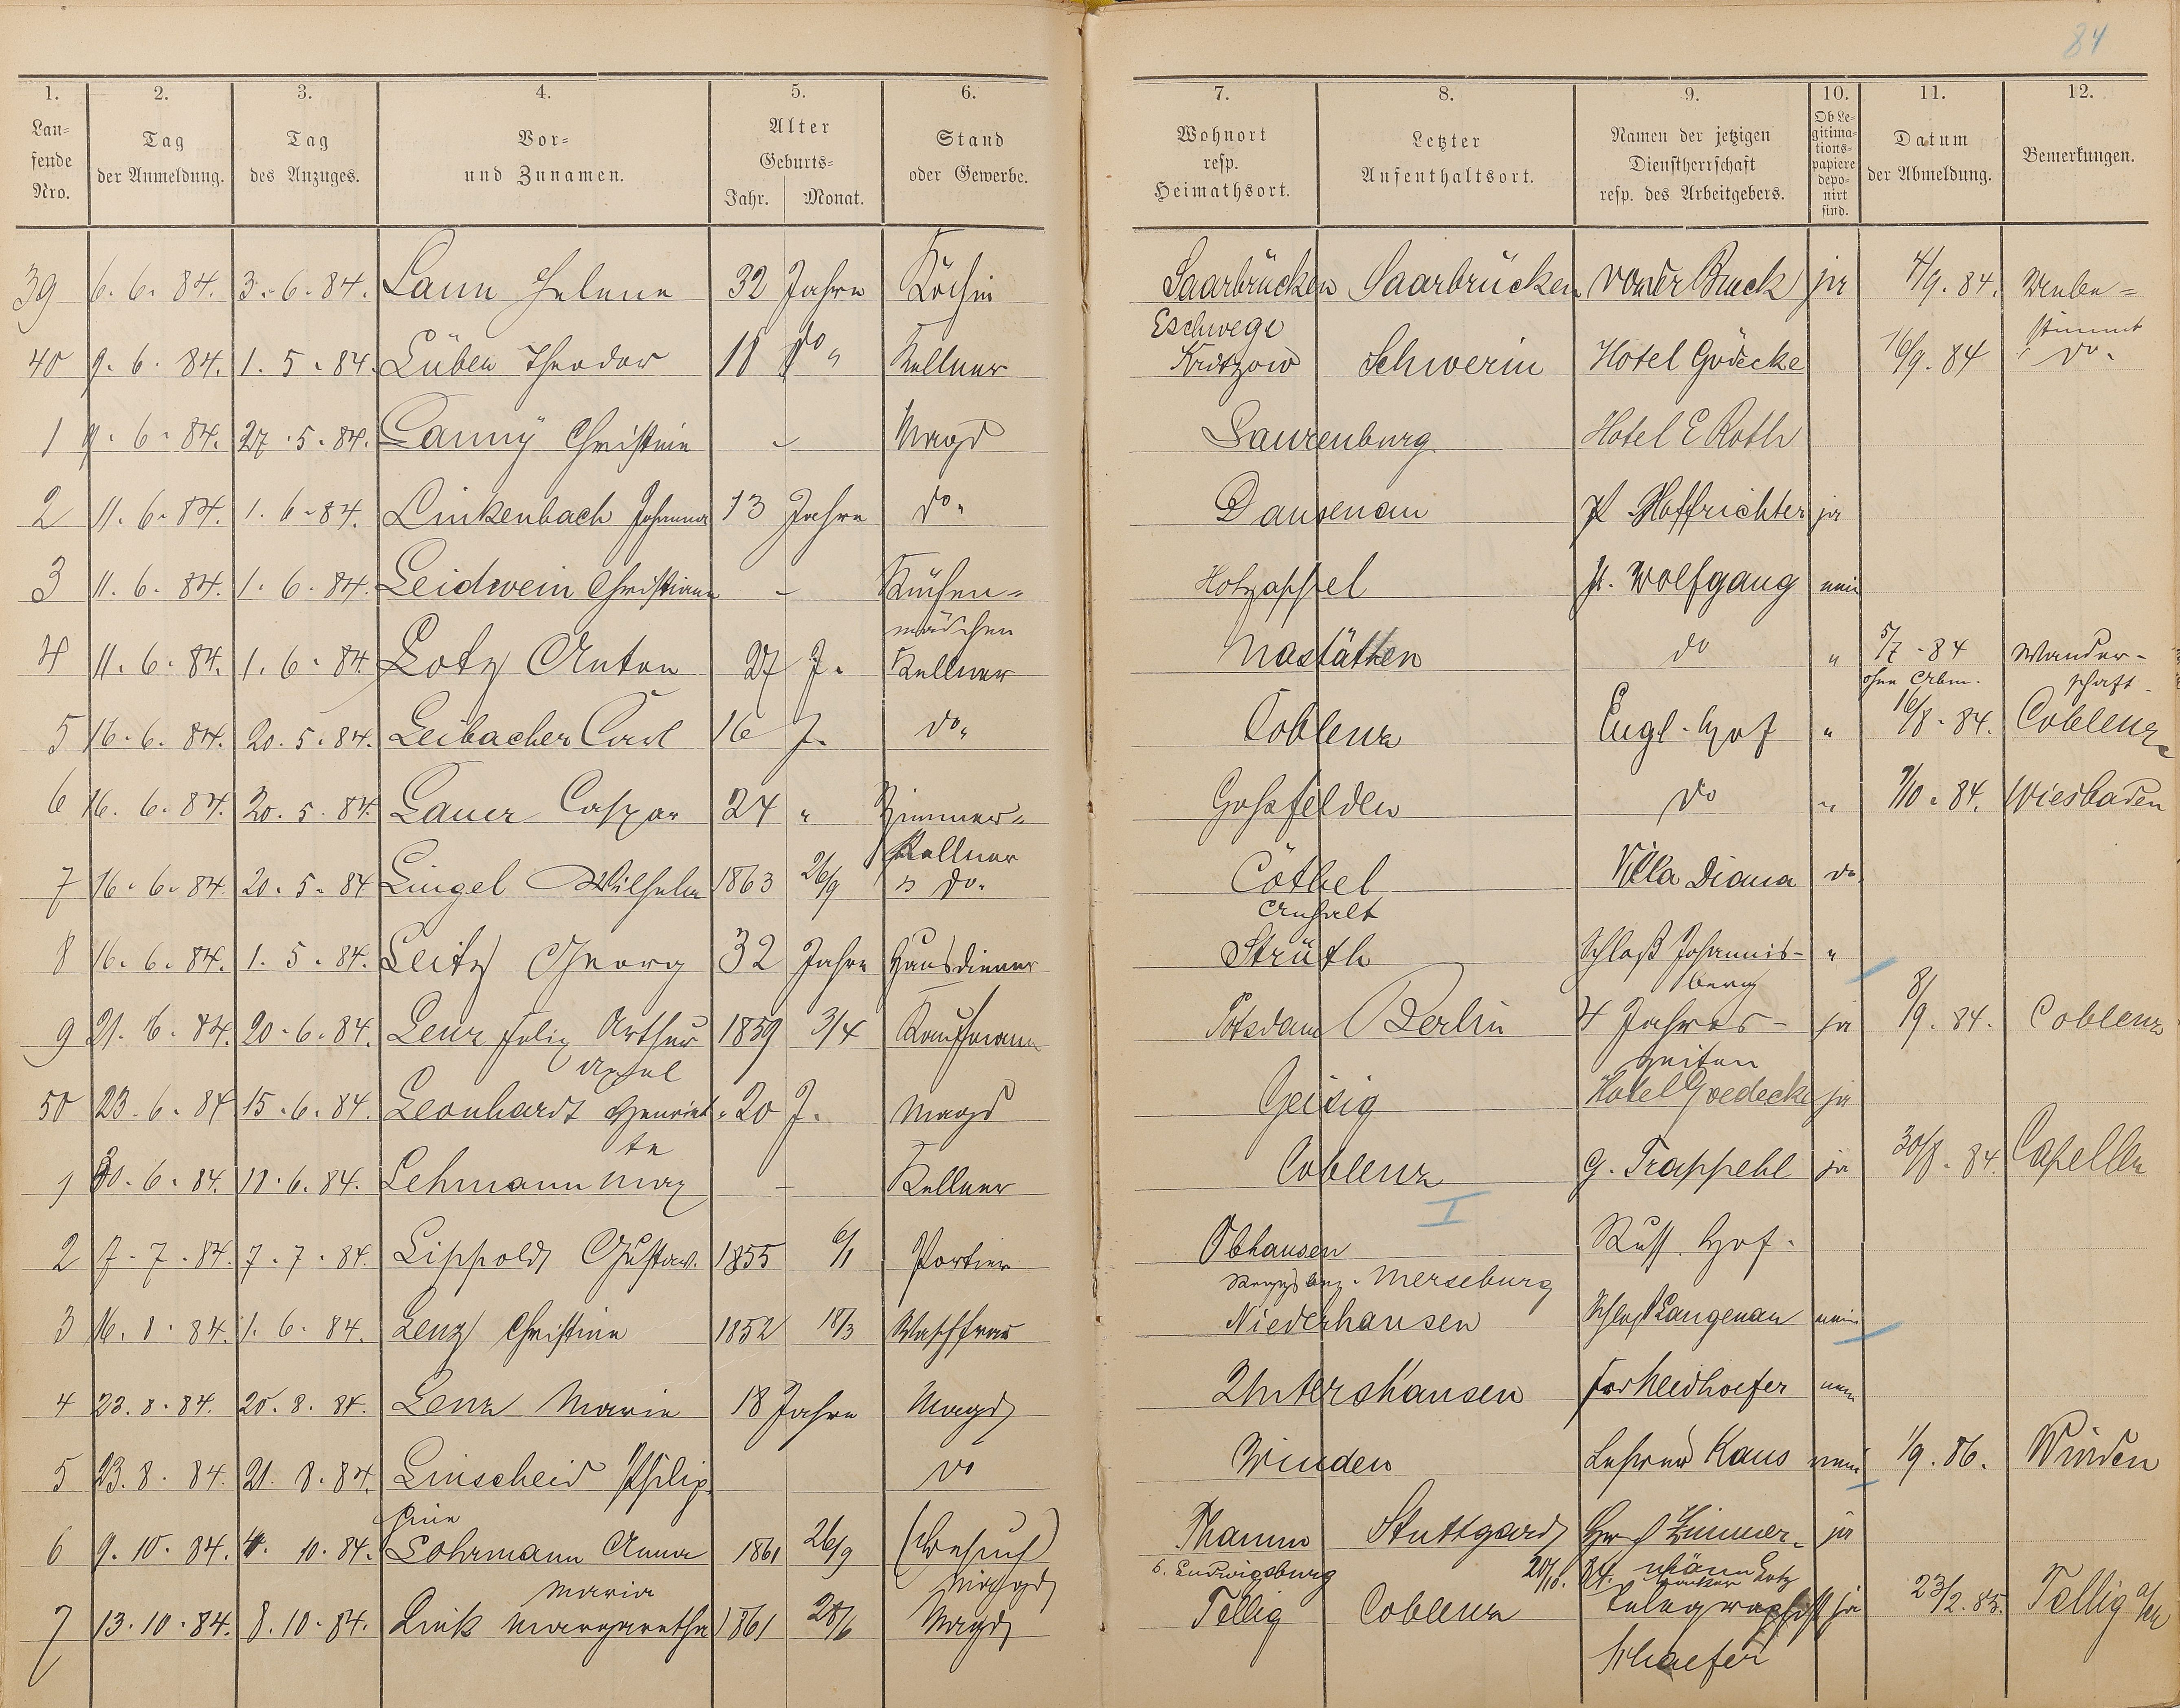 84
1. 2. 3. 4. 5. 6. 7. 8. 9. 10. 11. 12.
Lau-
fende
Nro.
Tag
der Anmeldung.
Tag
des Anzuges.
Vor-
und Zunamen.
Alter
Geburts-
Jahr. Monat.
Stand
oder Gewerbe.
Wohnort
resp.
Heimathsort.
Letzter
Aufenthaltsort.
Namen der jetzigen
Dienstherrschaft
resp. des Arbeitgebers.
Ob Le-
gitima-
tions-
papiere
depo-
nirt
sind.
Datum
der Abmeldung.
Bemerkungen.
39 6. 6. 84. 3. 6. 84. Laun Helene 32 Jahre Köchin Saarbrücken Saarbrücken von der Bruck ja 4/9. 84. Unbe=
stimmt
Eschwege
40 9. 6. 84. 1. 5. 84. Lüben Theodor 18 do " Kellner Kritzow Schwerin Hotel Gödecke 16/9. 84 " do.
1 9. 6. 84. 27. 5. 84. Lanny Christine - Magd Laurenburg Hotel E Roth
2 11. 6. 84. 1. 6. 84. Linkenbach Johanna 13 Jahre do. Dausenau P. Hoffrichter ja
3 11. 6. 84. 1. 6. 84. Leidwein Christiane - Küchen=
mädchen
Holzappel H. Wolfgang nein
4 11. 6. 84. 1. 6. 84 Lotz Anton 27 J. Kellner Nastätten do " 5/7. 84 Wander-
schaft
ohne Abm.
5 16. 6. 84. 20. 5. 84. Leibacher Carl 16 J. do. Coblenz Engl. Hof " 16/8. 84. Coblenz
6 16. 6. 84. 20. 5. 84. Lauer Caspar 24 " Zimmer=
Kellner
Goßfelden do " 9/10. 84. Wiesbaden
7 16. 6. 84. 20. 5. 84 Lingel Wilhelm 1863 26/9 " do. Cöthel
Anhalt
Villa Diana do.
8 16. 6. 84. 1. 5. 84. Leitz Georg 32 Jahre Hausdiener Strüth Schloß Johannis-
berg
"
9 21. 6. 84. 20. 6. 84. Lenz Felix Arthur
Axel
1859 3/4 Kaufmann Potsdam Berlin 4 Jahres-
zeiten
ja 8/9. 84. Coblenz
50 23. 6. 84 15. 6. 84. Leonhardt Henriet-
te
20 J. Magd Geisig Hotel Goedecke ja
1 30. 6. 84. 18. 6. 84. Lehmann Max - Kellner Coblenz G. Trappehl ja 30/8. 84. Capellen
I
2 7. 7. 84. 7. 7. 84. Lippold Gustav. 1855 6/1 Portier Obhausen
Regsbez. Merseburg
Russ. Hof.
3 16. 8. 84. 1. 6. 84. Lenz Christine 1852 18/3 Waschfrau Niederhausen Schloß Langenau nein
4 23. 8. 84. 20. 8. 84. Lenz Marie 18 Jahre Magd Untershausen Neidhoefer nein
5 23. 8. 84. 21. 8. 84. Linscheid Philip-
pine
do Winden Lehrer Kaus nein 1/9. 86. Winden
6 9. 10. 84. 4. 10. 84. Lohrmann Anna
Maria
1861 26/9 (Besuch)
Magd
Thamm
b. Ludwigsburg
Stuttgard Zimmer=
mann
ja
20/10. 84. Lotz
7 13. 10. 84. 8. 10. 84. Link Margaretha 1861 28/6 Magd Tellig Coblenz Telegraphist
Schaefer
ja 23/2. 85. Tellig a/M